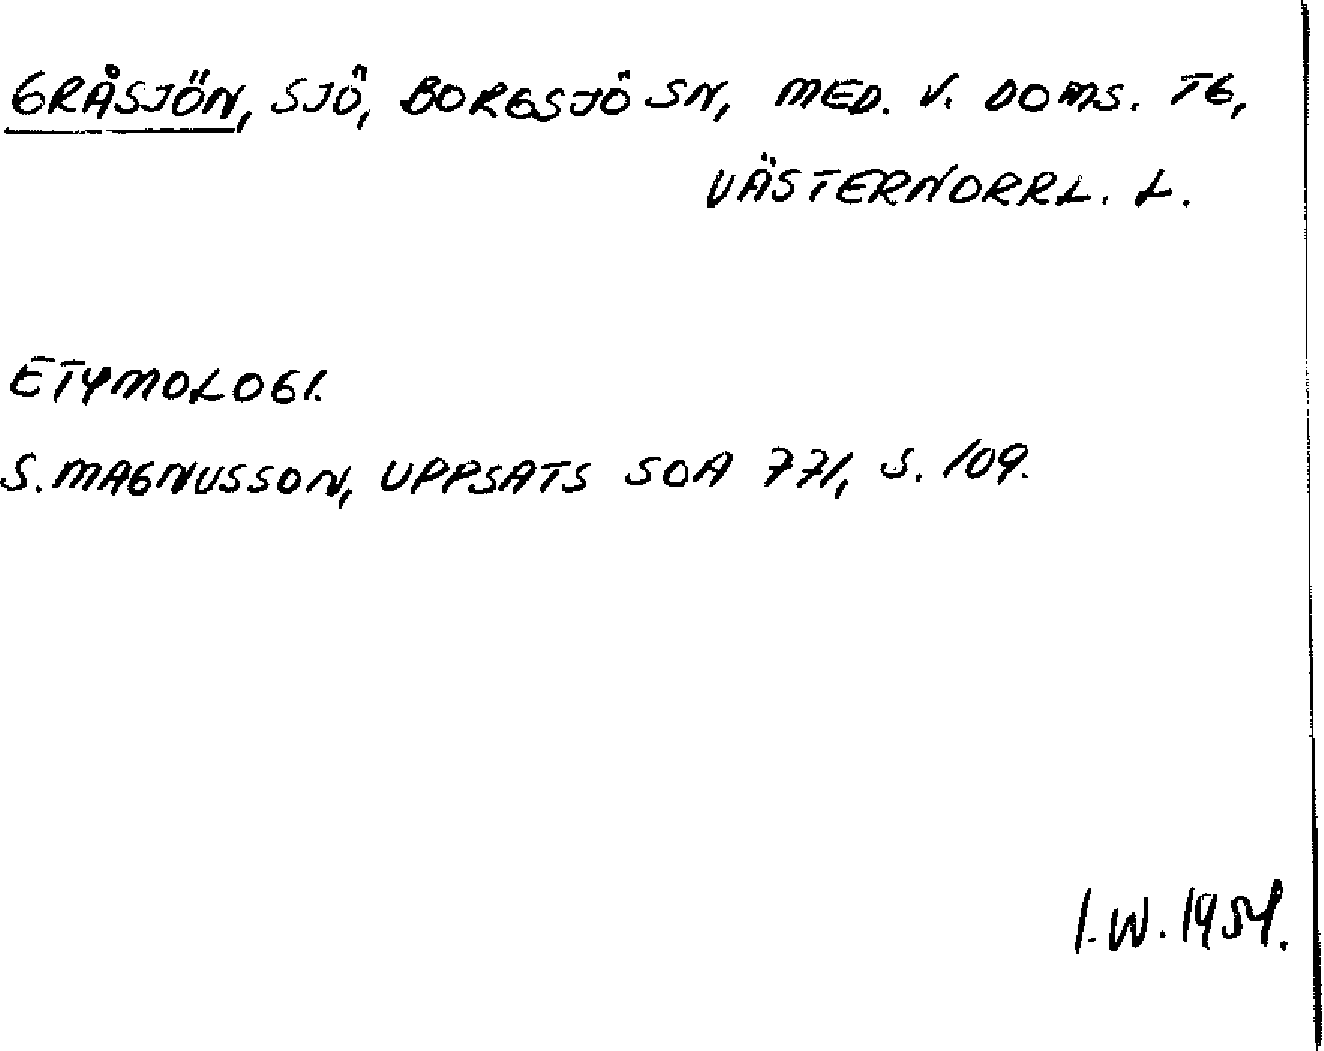 GRÅSJÖN, SJÖ, BORGSJÖ SN, MED. V. DOMS. TG,
VÄSTERNORRL. L.
ETYMOLOGI.
S. MAGNUSSON, UPPSATS SOA 771, S. 109.
I.W. 1954.